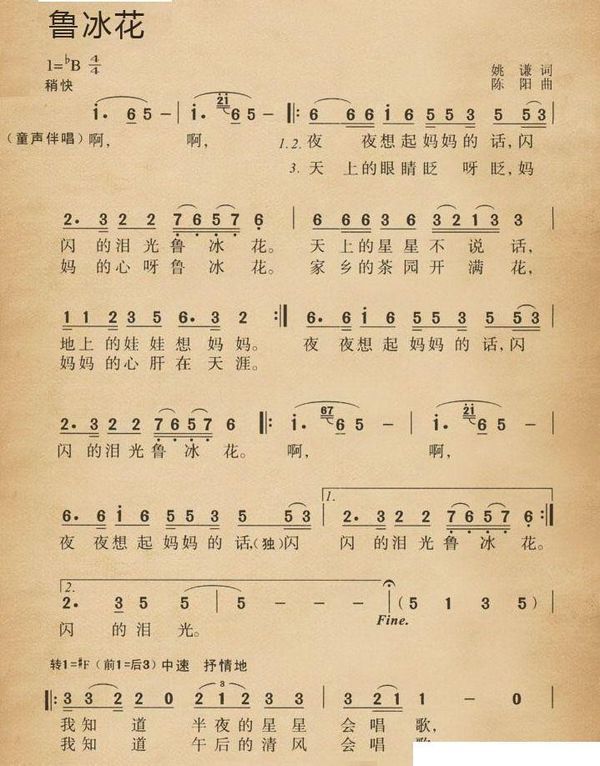 鲁冰花
1=♭B 4/4
姚 谦 词
稍快
陈 阳 曲
i· 65 - | i· 2i 65 - |: 6 66i6 553 5 53 |
(童声伴唱)啊, 啊, 1.2. 夜 夜想起妈妈的 话,闪
3. 天 上的眼睛眨 呀眨,妈
2· 3 2 2 7657 6 | 6 6 6 3 6 32133 |
闪 的泪光鲁 冰 花。 天上的星星不 说 话,
妈 的心呀鲁 冰 花。 家乡的茶园开 满 花,
1 1 2 3 5 6· 3 2 :| 6· 6i6 553 5 53 |
地上的娃娃想 妈妈。 夜 夜想起妈妈的话,闪
妈妈的心肝在 天涯。
2· 3 2 2 7657 6 |: i· 67 65 - | i· 2i 65 - |
闪 的泪光鲁 冰 花。 啊, 啊,
1.
6· 6i6 553 5 53 | 2· 3 2 2 7657 6 :|
夜 夜想起妈妈的话,(独)闪 闪的泪光鲁 冰 花。
2.
2· 3 5 5 | 5 - - - | (5 1 3 5) |
闪 的泪 光。 Fine.
转1=♯F(前1=后3)中速 抒情地
|: 3 3 2 2 0 2 1 2 3 3 | 3 21 1 - 0 |
3
我知 道 半夜的星星 会唱歌,
我知 道 午后的清风 会唱